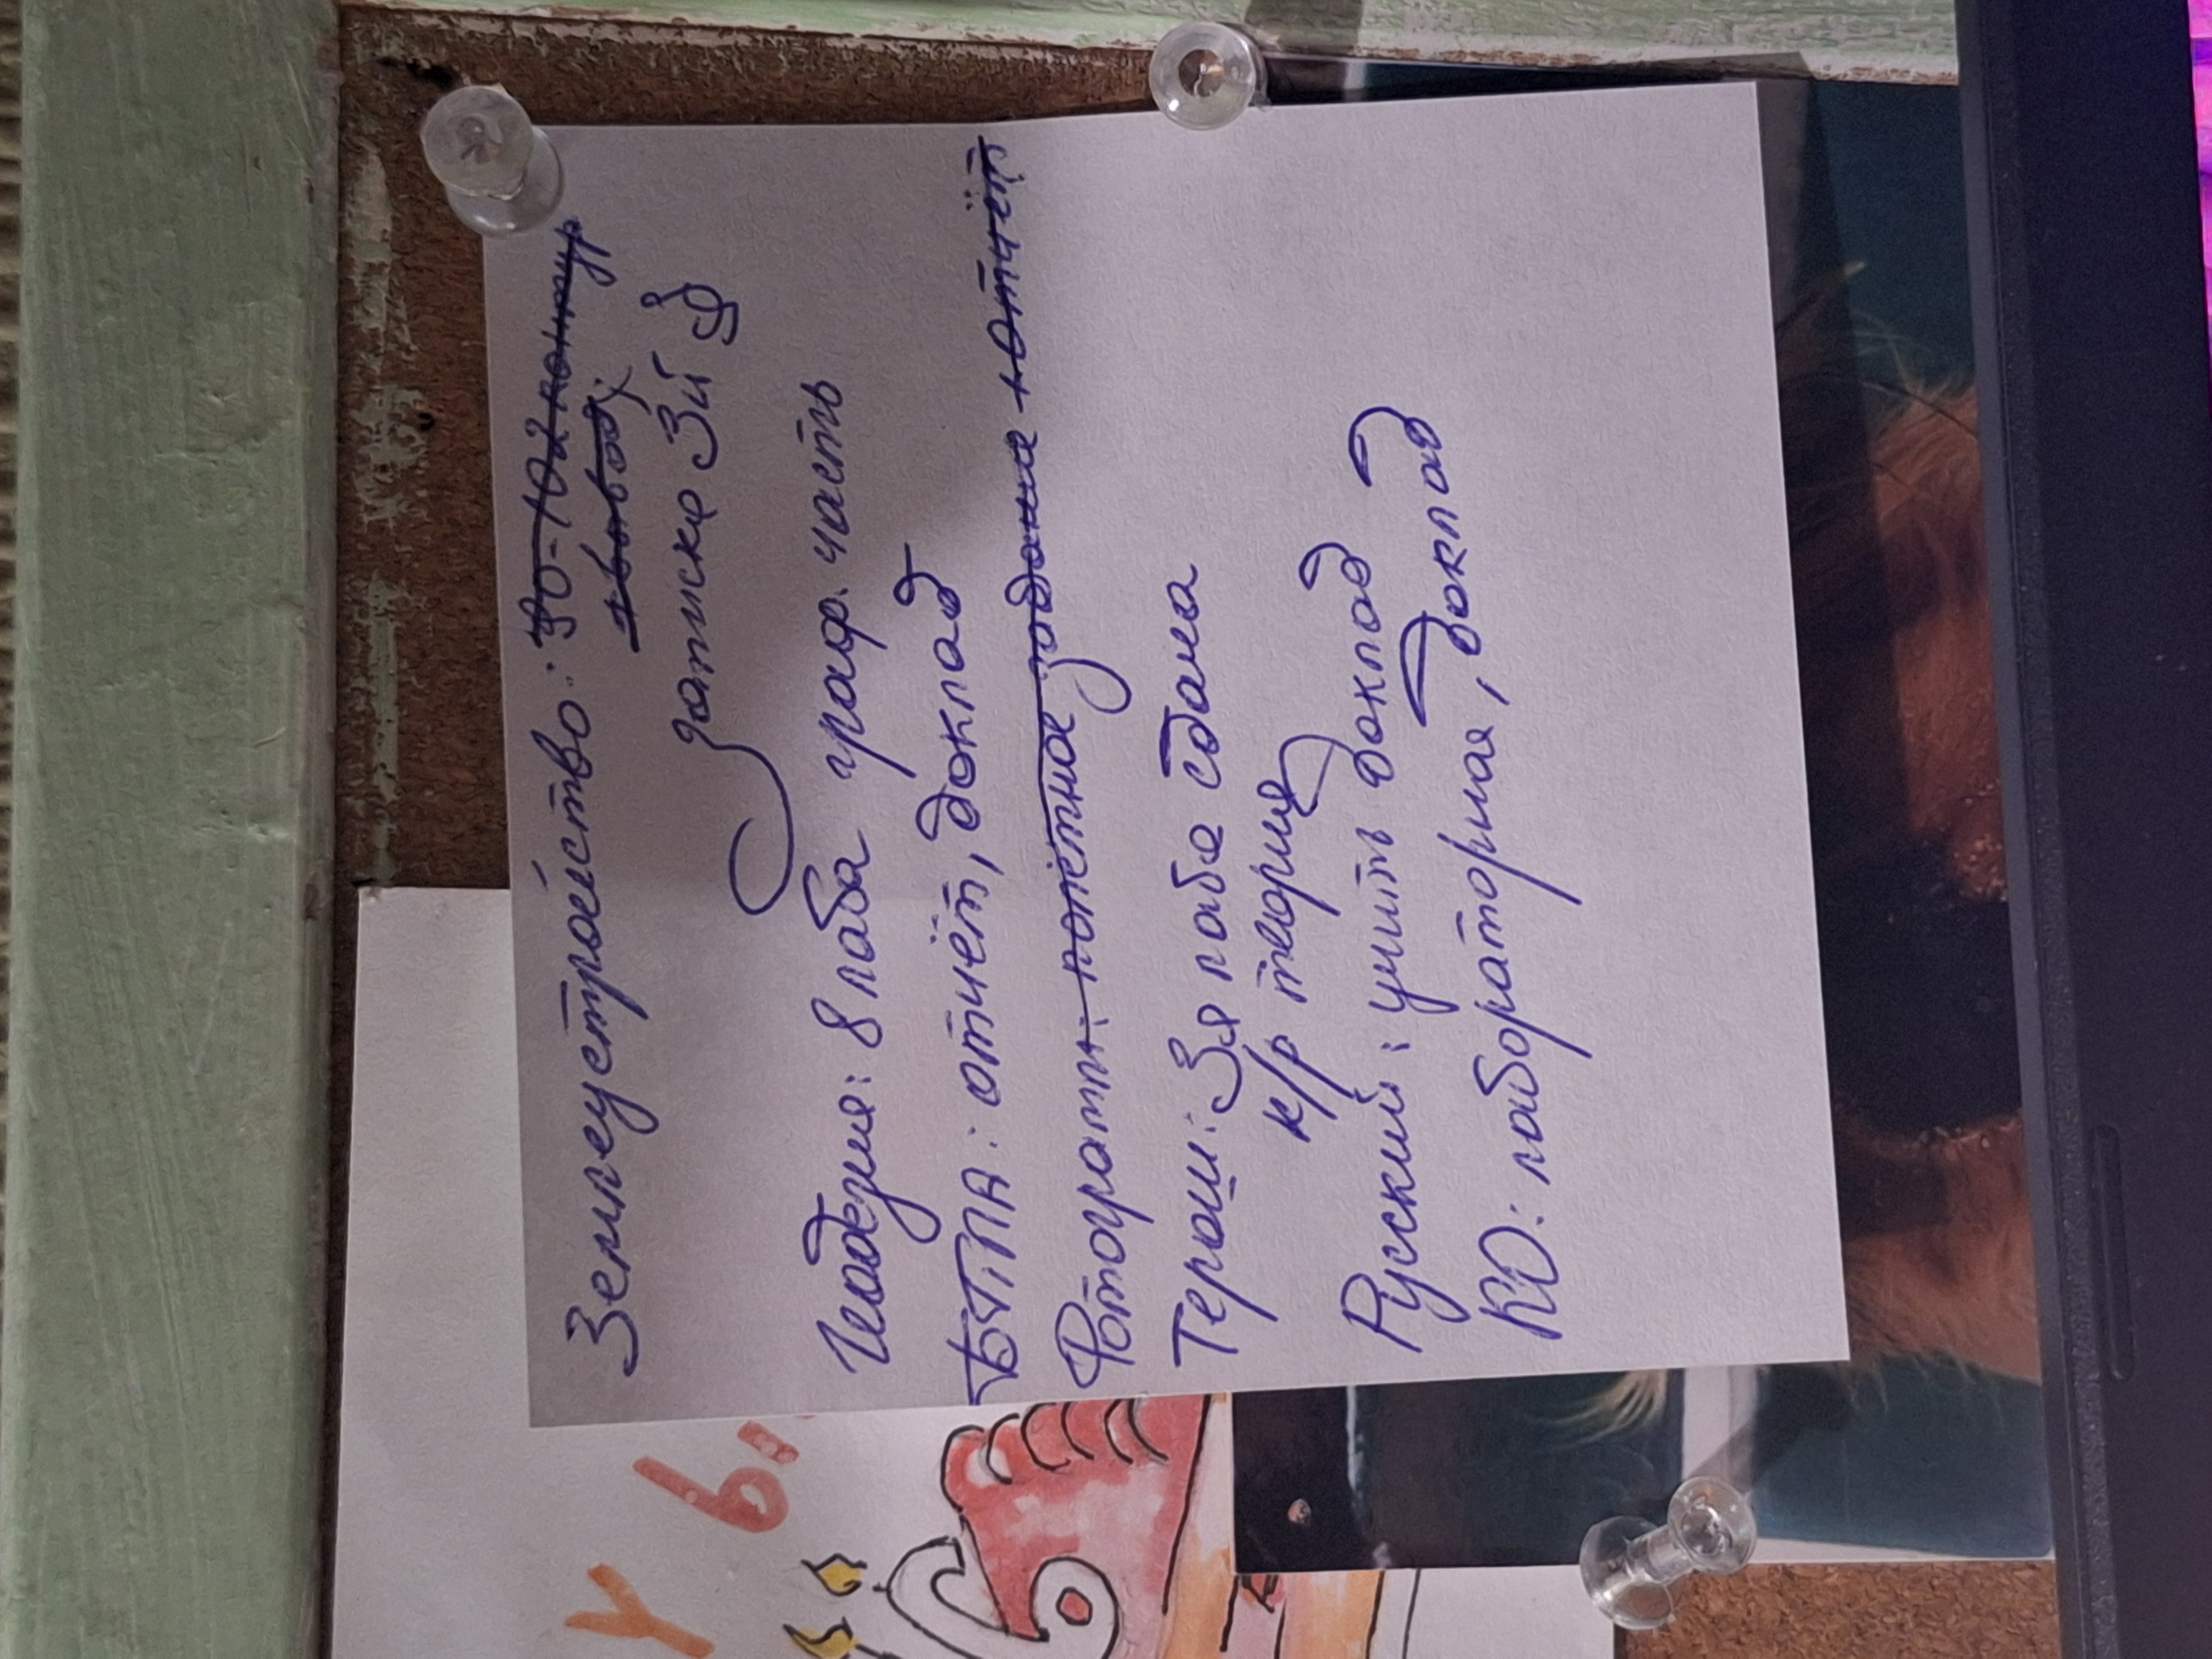 Землеустройство: 90-102 контур
+выводы
записка Зй
Геодезия: 8 лаба граф. часть
БТПА: отчёт, доклад
Фотограмм: полётное задание +отчёт
Терош: 3я лаба сдана
к/р теория
Руский: учить доклад
КО: лабораторная, доклад
У Б